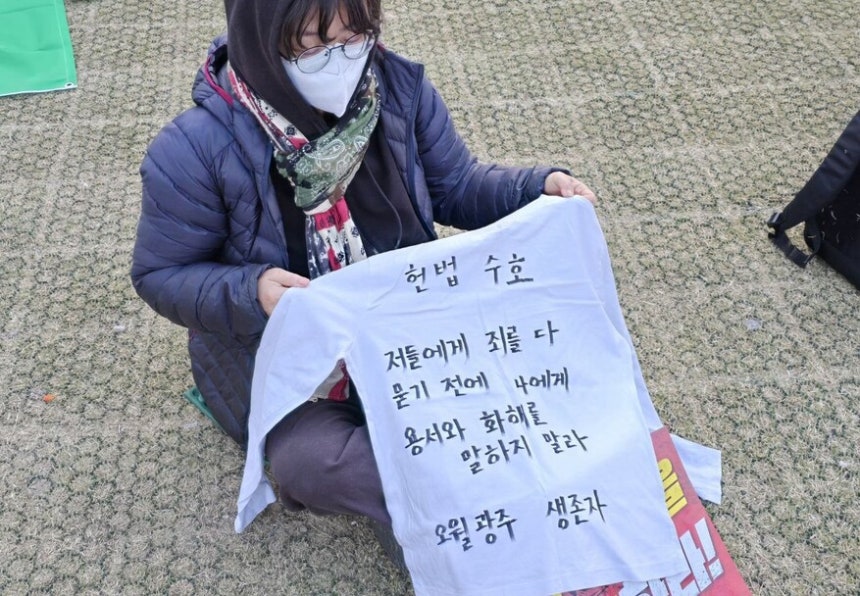 헌법 수호
저들에게 죄를 다
묻기 전에 나에게
용서와 화해를
말하지 말라
오월광주 생존자